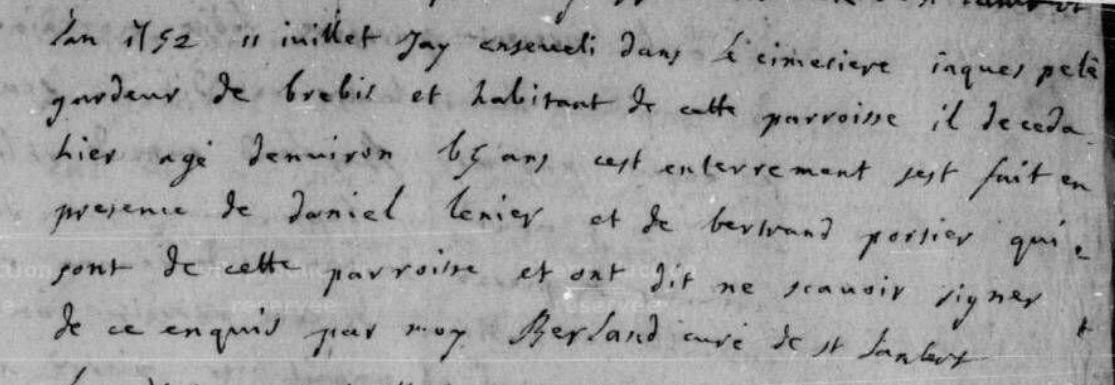 lan 1752 11 iuillet Jay enseueli dans le cimetiere iaques pele
gardeur de brebis et habitant de cette parroisse il deceda
hier agé denuiron 65 ans cest enterrement sest fait en
presence de daniel lenier et de bertrand portier qui
sont de cette parroisse et ont dit ne scauoir signer
de ce enquis par moy Berland curé de st lanbert